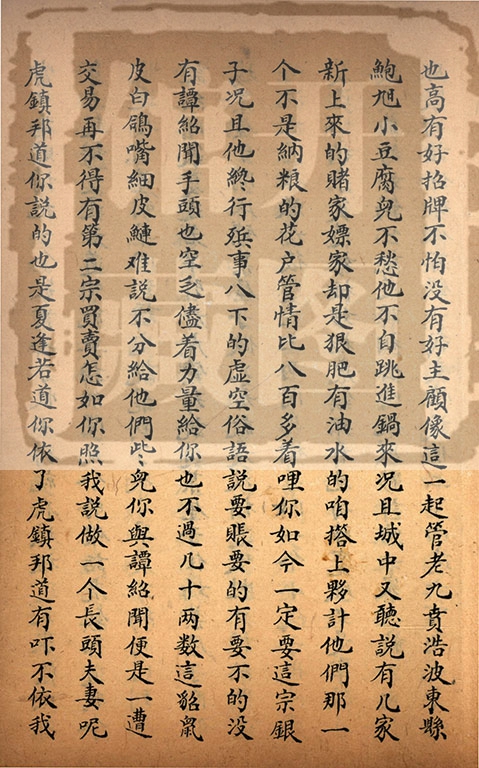 也高有好招牌不怕没有好主顧像這一起管老九賁浩波東縣
鮑旭小豆腐兒不愁他不自跳進鍋來况且城中又聽説有几家
新上來的賭家嫖家却是狠肥有油水的咱搭上夥計他們那一
个不是納粮的花户管情比八百多着哩你如今一定要這宗銀
子况且他終行殯事八下的虚空俗語説要賬要的有要不的没
有譚紹聞手頭也空乏儘着力量給你也不過几十两数這貂鼠
皮白鴿嘴細皮鰱难説不分給他們些〻兒你與譚紹聞便是一遭
交易再不得有第二宗買賣怎如你照我説做一个長頭夫妻呢
虎鎮邦道你説的也是夏逢若道你依了虎鎮邦道有吓不依我